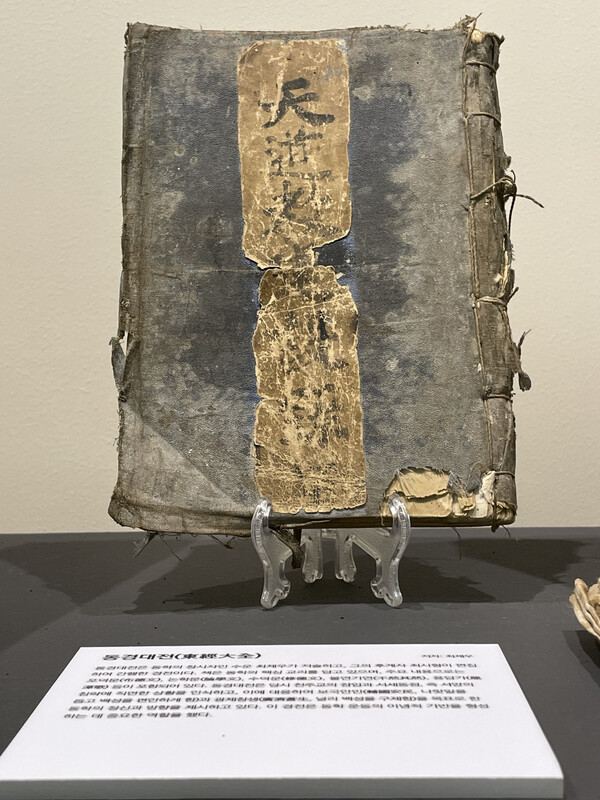 天道
동경대전(東經大全)
저자: 최제우
동경대전은 동학의 창시자인 수운 최제우가 저술하고, 그의 후계자 최시형이 편집
하여 간행한 경전이다. 책은 동학의 핵심 교리를 담고 있으며, 주요 내용으로는
포덕문(布德文), 논학문(論學文), 수덕문(修德文), 불연기연(不然其然), 용담가(龍
潭歌) 등이 포함되어 있다. 동경대전은 당시 천주교의 전입과 서세동점, 즉 서양의
침략에 직면한 상황을 인식하고, 이에 대응하여 보국안민(輔國安民, 나랏일을
돕고 백성을 편안하게 함)과 광제창생(廣濟蒼生, 널리 백성을 구제함)을 목표로 한
동학의 정신과 방향을 제시하고 있다. 이 경전은 동학 운동의 이념적 기반을 형성
하는 데 중요한 역할을 했다.